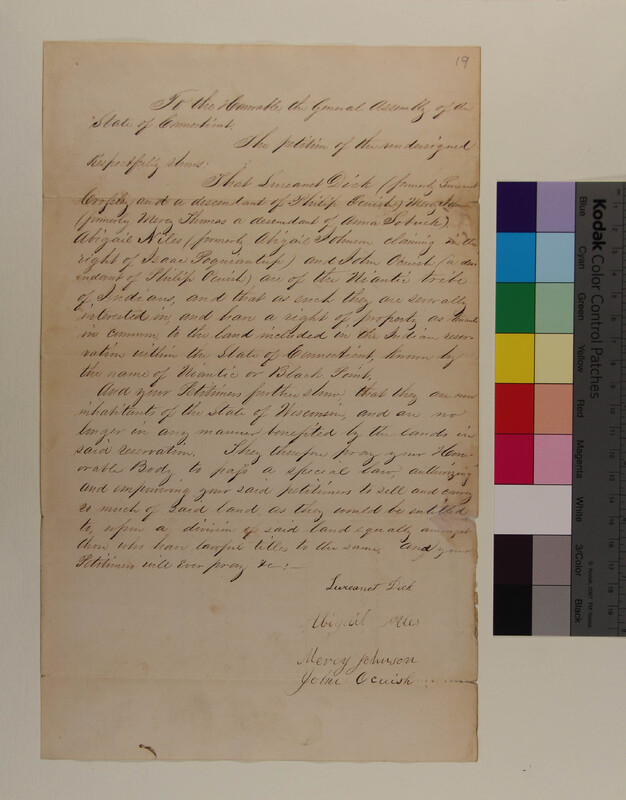 19
To the Honorable the General Assembly of the
State of Connecticut.
The petition of the undersigned
Respectfully shews:
That Luceanet Dick (formerly
and a descendant of Philip Ocuish) Mercy
(formerly Mercy Thomas a descendant of Anna Sobuck)
Abigail Niles (formerly Abigail Johnson claiming in the
right of Isaac ) and John Ocuish (a des-
cendant of Philip Ocuish) are of the Niantic tribe
of Indians, and that as such they are severally
interested in, and have a right of property as tenants
in common, to the land included in the Indian reser-
vation within the State of Connecticut, known by
the name of Niantic or Black Point,
And your Petitioners further shew, that they are now
inhabitants of the State of Wisconsin, and are no
longer in any manner benefited by the lands in
said reservation. They therefore pray your Hon-
orable Body to pass a special law, authorizing
and empowering your said petitioners to sell and convey
so much of said land as they would be entitled
to, upon a division of said land equally amongst
them who have lawful titles to the same, and your
Petitioners will Ever pray &c:—
Luceanet Dick
Abigail Niles
Mercy Johnson
John Ocuish
Kodak Color Control Patches
Blue
Cyan
Green
Yellow
Red
Magenta
White
3/Color
Black